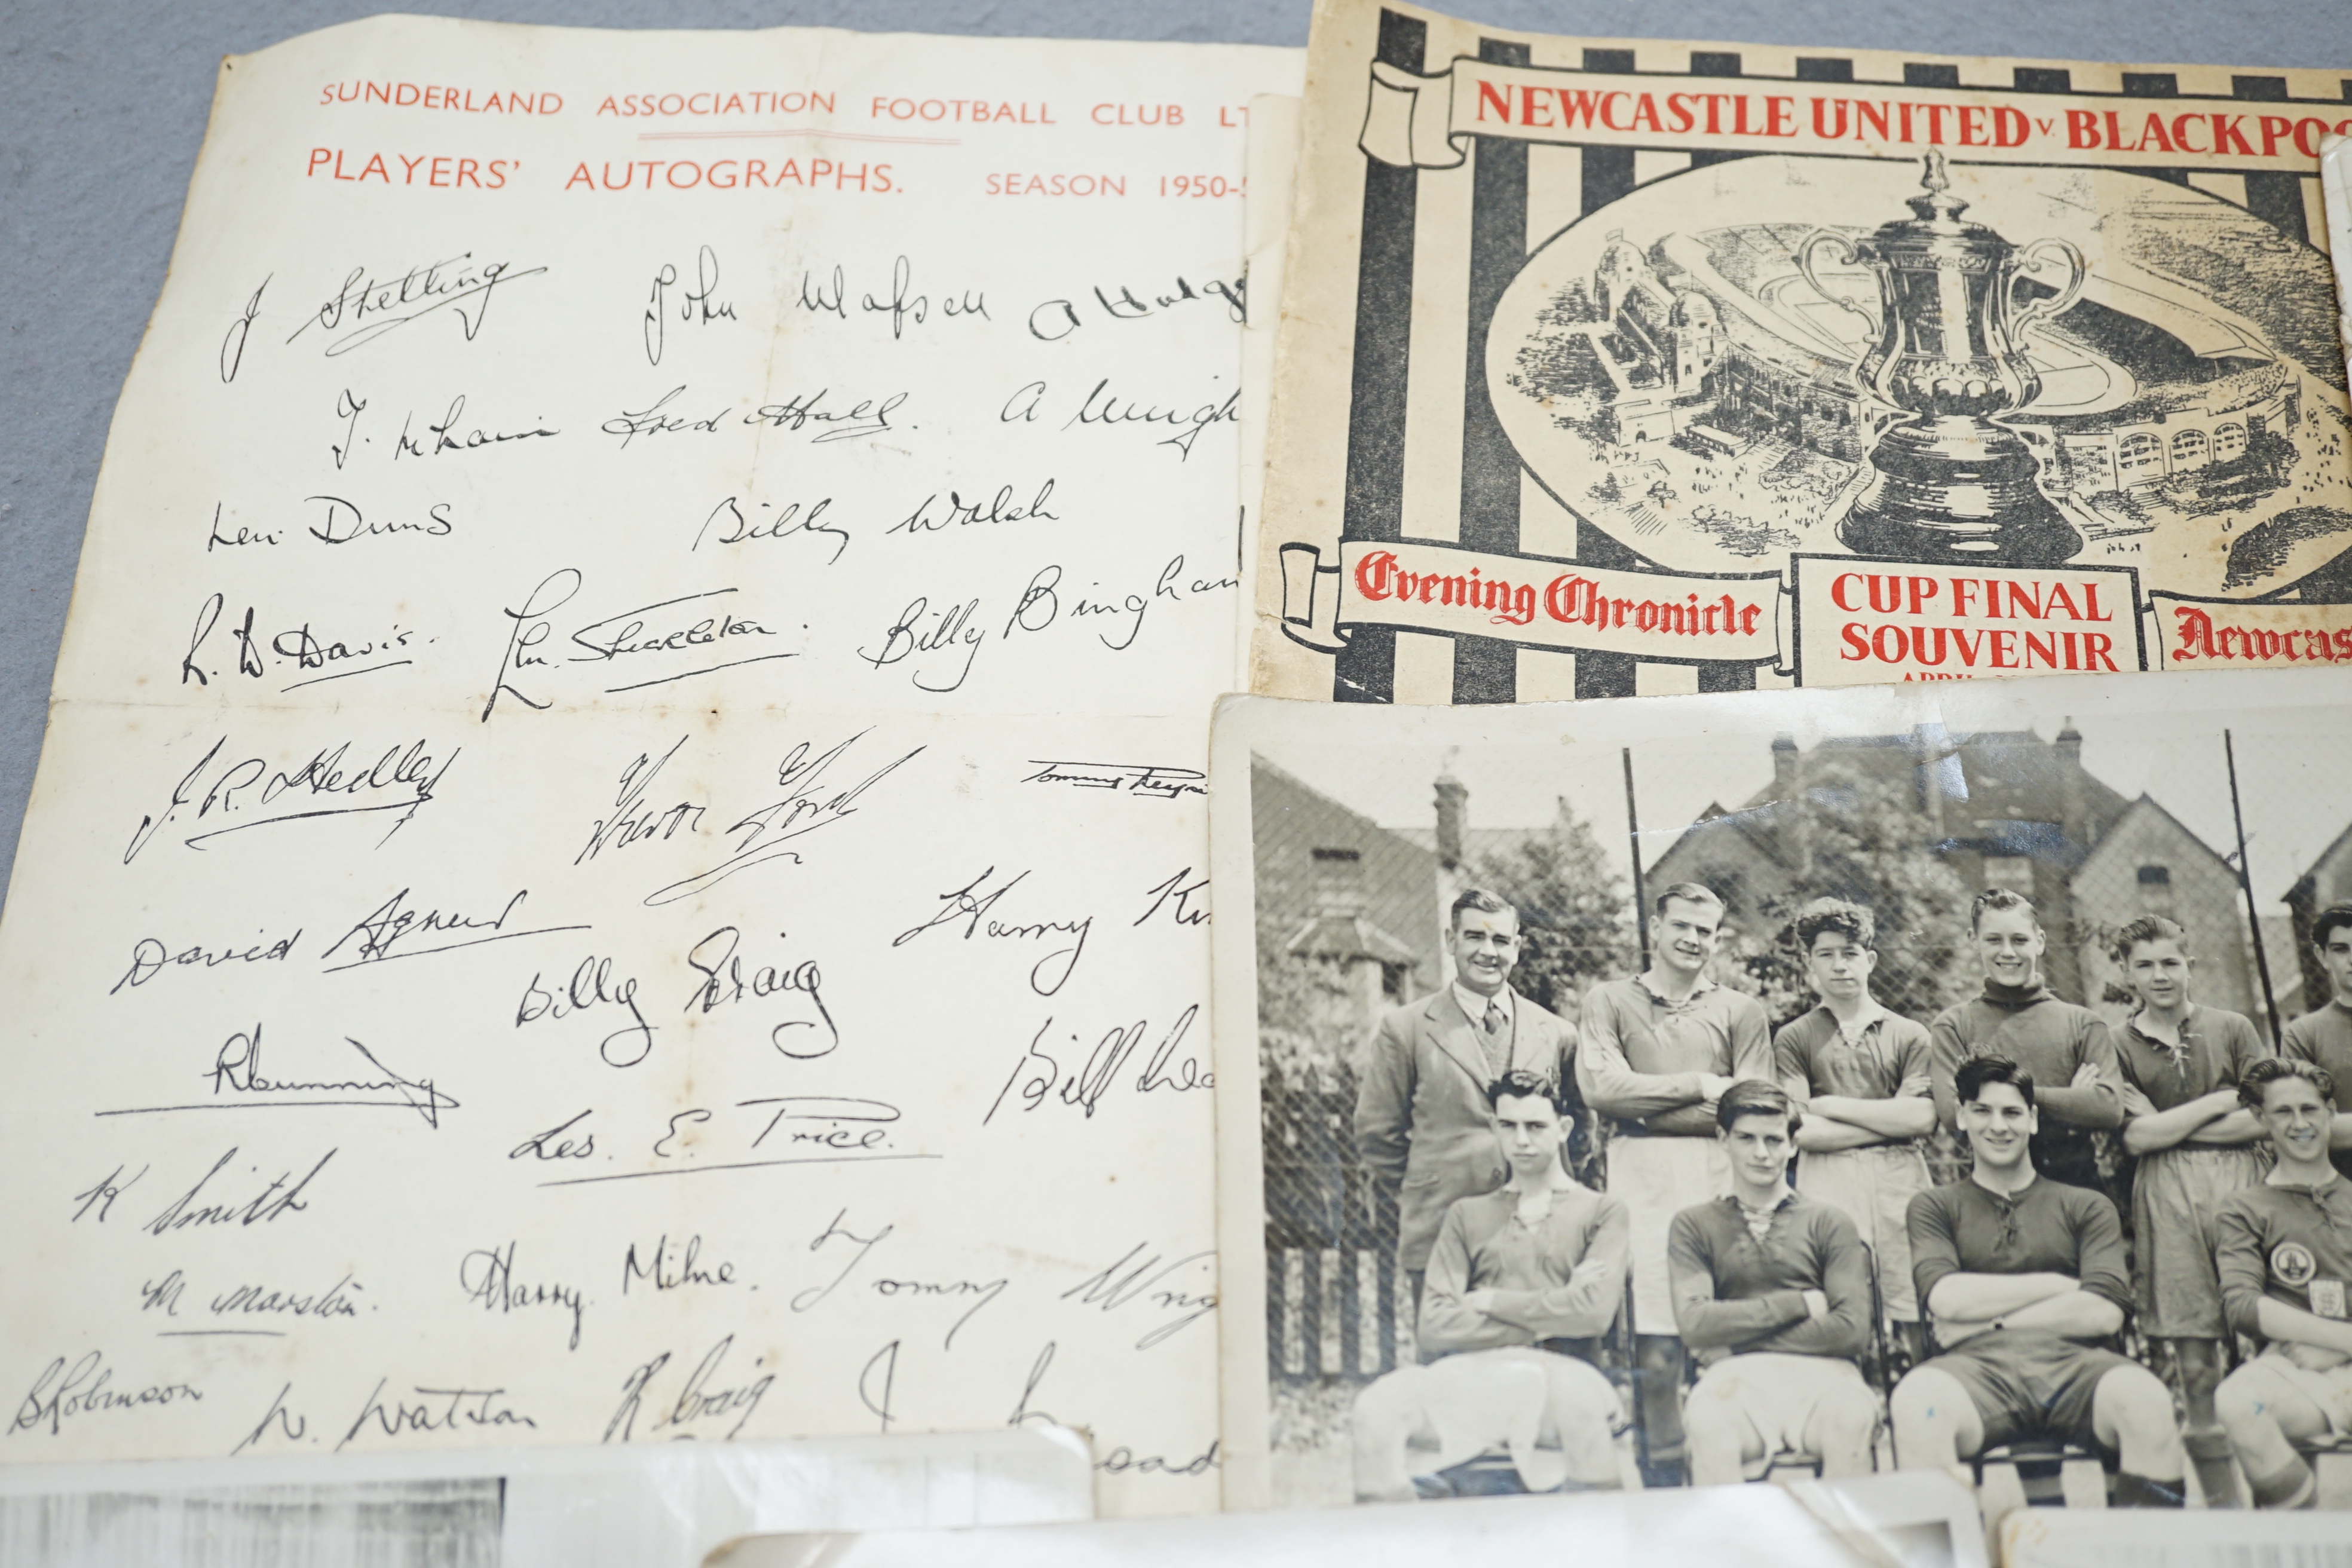 SUNDERLAND ASSOCIATION FOOTBALL CLUB
PLAYERS' AUTOGRAPHS. SEASON 1950-
J Stelling John Watson A Hudg
T. McLain Fred Hall. A Wrigh
Len Duns Billy Walsh
R. W. Davis. Len. Shackleton. Billy Bingham
J. R. Hedley Trevor Ford Tommy Reyn
David Agnew Billy Craig Harry Ki
R Dunning Les. E. Price. Bill
K Smith
M Marston. Harry Milne. Tommy Wrig
B Robinson W. Watson R Craig J
ead
NEWCASTLE UNITED v BLACKPOO
Evening Chronicle
CUP FINAL
SOUVENIR
Newcas